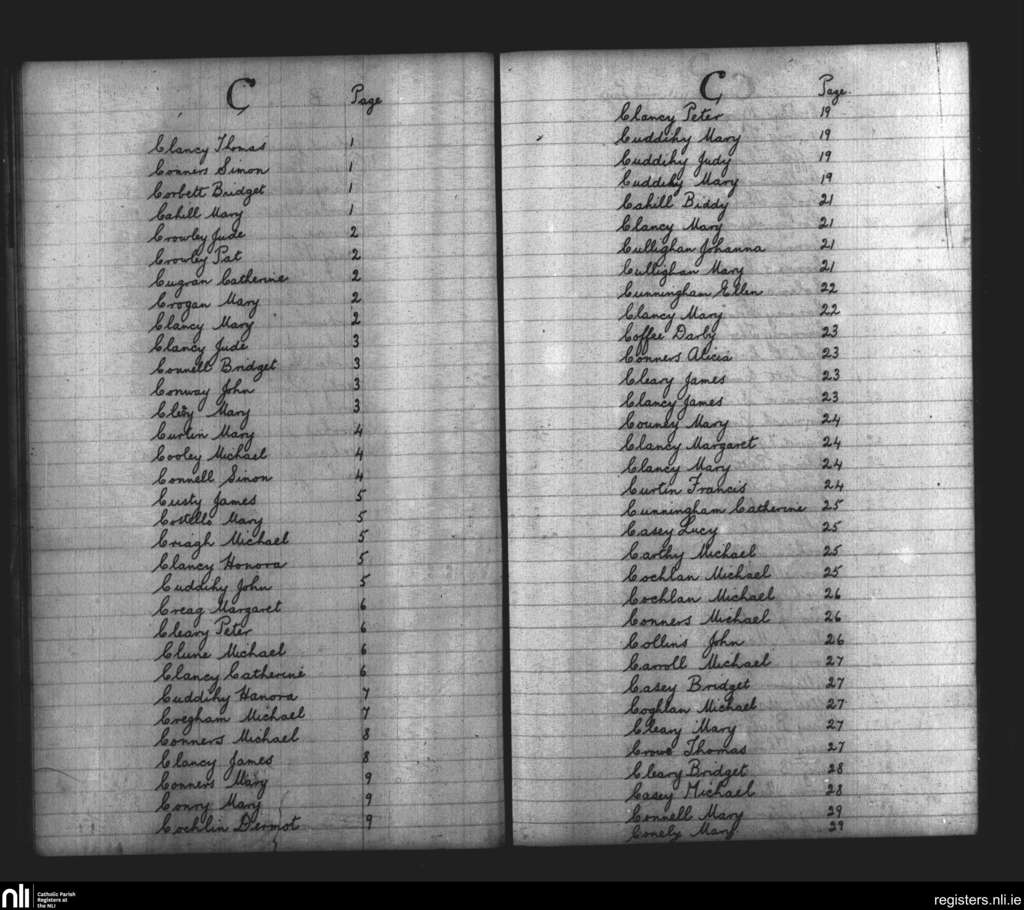 C
Page
Clancy Thomas 1
Conners Simon 1
Corbett Bridget 1
Cahill Mary 1
Crowley Jude 2
Crowley Pat 2
Cugran Catherine 2
Crogan Mary 2
Clancy Mary 2
Clancy Jude 3
Connell Bridget 3
Conway John 3
Mary 3
Curtin Mary 4
Cooley Michael 4
Connell Sinon 4
Custy James 5
Costello Mary 5
Creagh Michael 5
Clancy Honora 5
Cuddihy John 5
Creag Margaret 6
Cleary Peter 6
Clune Michael 6
Clancy Catherine 6
Cuddihy Hanora 7
Cregham Michael 7
Conners Michael 8
Clancy James 8
Conners Mary 9
Conry Mary 9
Cochlin Dermot 9
C
Page
Clancy Peter 19
Cuddihy Mary 19
Cuddihy Judy 19
Cuddihy Mary 19
Cahill Biddy 21
Clancy Mary 21
Cullighan Johanna 21
Cullighan Mary 21
Cunningham Ellen 22
Clancy Mary 22
Coffee Darby 23
Conners Alicia 23
Cleary James 23
Clancy James 23
Couney Mary 24
Clancy Margaret 24
Clancy Mary 24
Curtin Francis 24
Cunningham Catherine 25
Casey Lucy 25
Carthy Michael 25
Cochlan Michael 25
Cochlan Michael 26
Conners Michael 26
Collins John 26
Carroll Michael 27
Casey Bridget 27
Coghlan Michael 27
Cleary Mary 27
Crowe Thomas 27
Cleary Bridget 28
Casey Michael 28
Connell Mary 29
Conely Mary 29
nli
Catholic Parish
Registers at
the NLI
registers.nli.ie